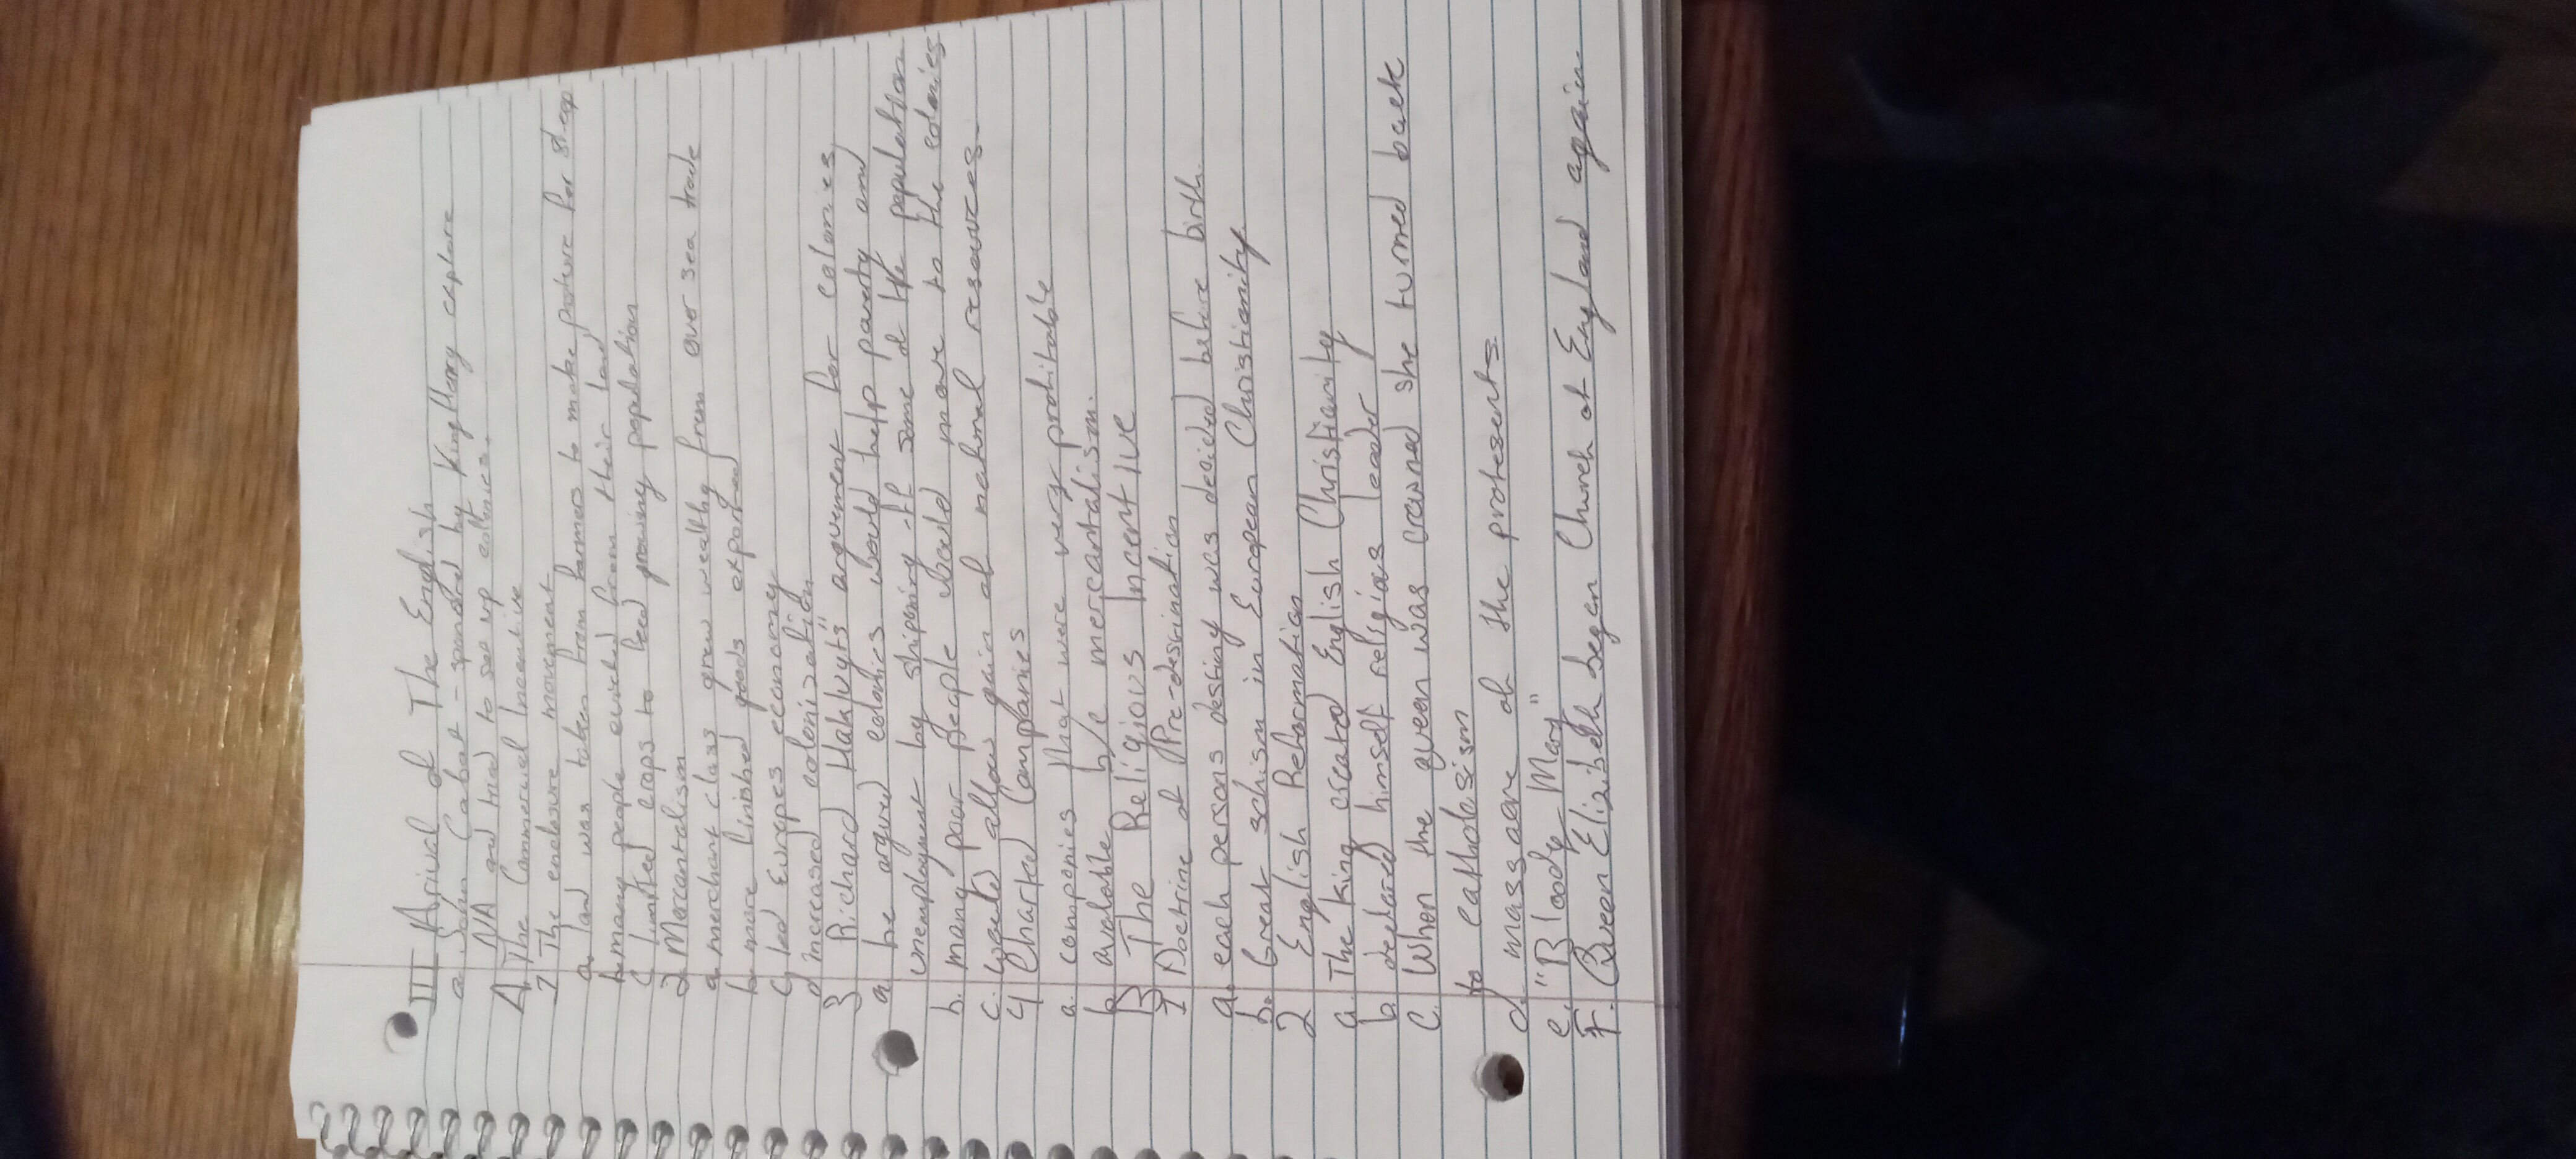 III Arival of The English
a. John Cabot - sponsored by King Henry explore
NA and tried to set up colonies.
A. The Commercial Incentive
1 The enclosure movement
a. land was taken from farmers to make pasture for sheep
b. many people evicted from their land
c limited crops to feed growing population
2 Mercantalism
a merchant class grew wealthy from over sea trade
b more finished goods exported
c, led Europes economy
d increased colonization
3 Richard Hakluyts" argument for colonies
a he argued colonies would help poverty and
unemployment by shipping off some of the population
b. many poor people would move to the colonies
c. would allow gain of natural resources.
4 Charted Companies
a. companies that were very profitable
b. avalable b/c mercantalism.
B The Religious Incentive
1 Doctrine of Pre-destination
a. each persons destiny was decided before birth.
b. Great schism in European Christianity
2 English Reformation
a. The king created English Christianity
b. declared himself religious leader
C. When the queen was crowned she turned back
to catholosism
d. massacre of the protesents.
e. "Bloody Mary"
F. Queen Elizibeth began Church of England again